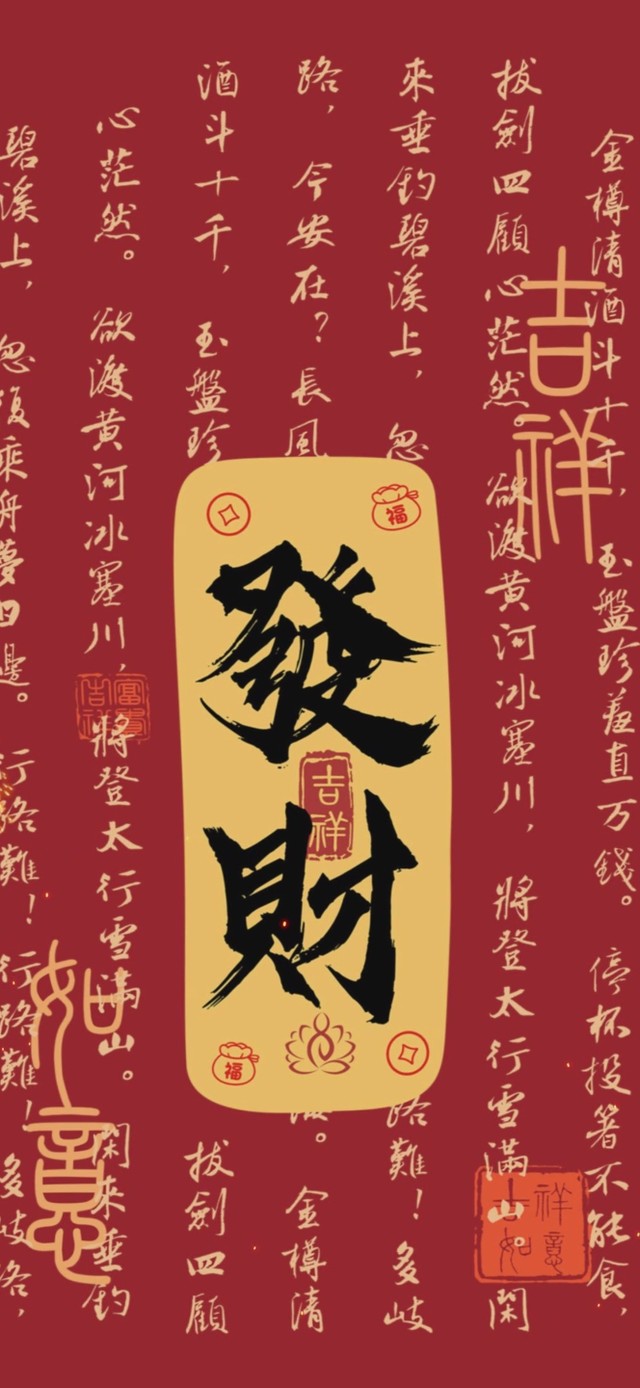 金樽清酒斗十千,玉盤珍羞直万錢。停杯投箸不能食,
拔劍四顧心茫然。欲渡黄河冰塞川,將登太行雪滿山。閑
來垂釣碧溪上,忽
路難!多岐
路,今安在?長風
。金樽清
酒斗十千,玉盤珍
拔劍四顧
心茫然。欲渡黄河冰塞川,將登太行雪滿山。閑來垂釣
碧溪上,忽復乘舟夢日邊。行路難!行路難!多岐路,
吉祥
發財
吉祥
福
福
如意
富貴
吉祥
吉祥
如意